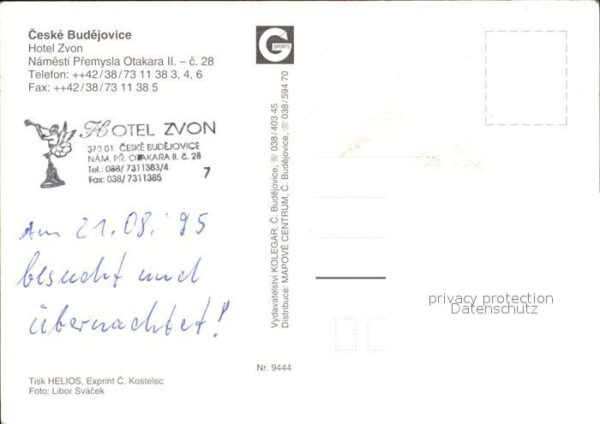 České Budějovice
Hotel Zvon
Náměstí Přemysla Otakara II. – č. 28
Telefon: ++42/38/73 11 38 3, 4, 6
Fax: ++42/38/73 11 38 5
HOTEL ZVON
370 01 ČESKÉ BUDĚJOVICE
NÁM. PŘ. OTAKARA II. č. 28
Tel.: 038/7311383/4
Fax: 038/7311385
7
Am 21.08.'95
besucht und
übernachtet!
Tisk HELIOS, Exprint Č. Kostelec
Foto: Libor Sváček
G
SPORTS
Vydavatelství KOLEGAR, Č. Budějovice, ☏ 038/403 45
Distribuce: MAPOVÉ CENTRUM, Č. Budějovice, ☏ 038/594 70
Nr. 9444
privacy protection
Datenschutz